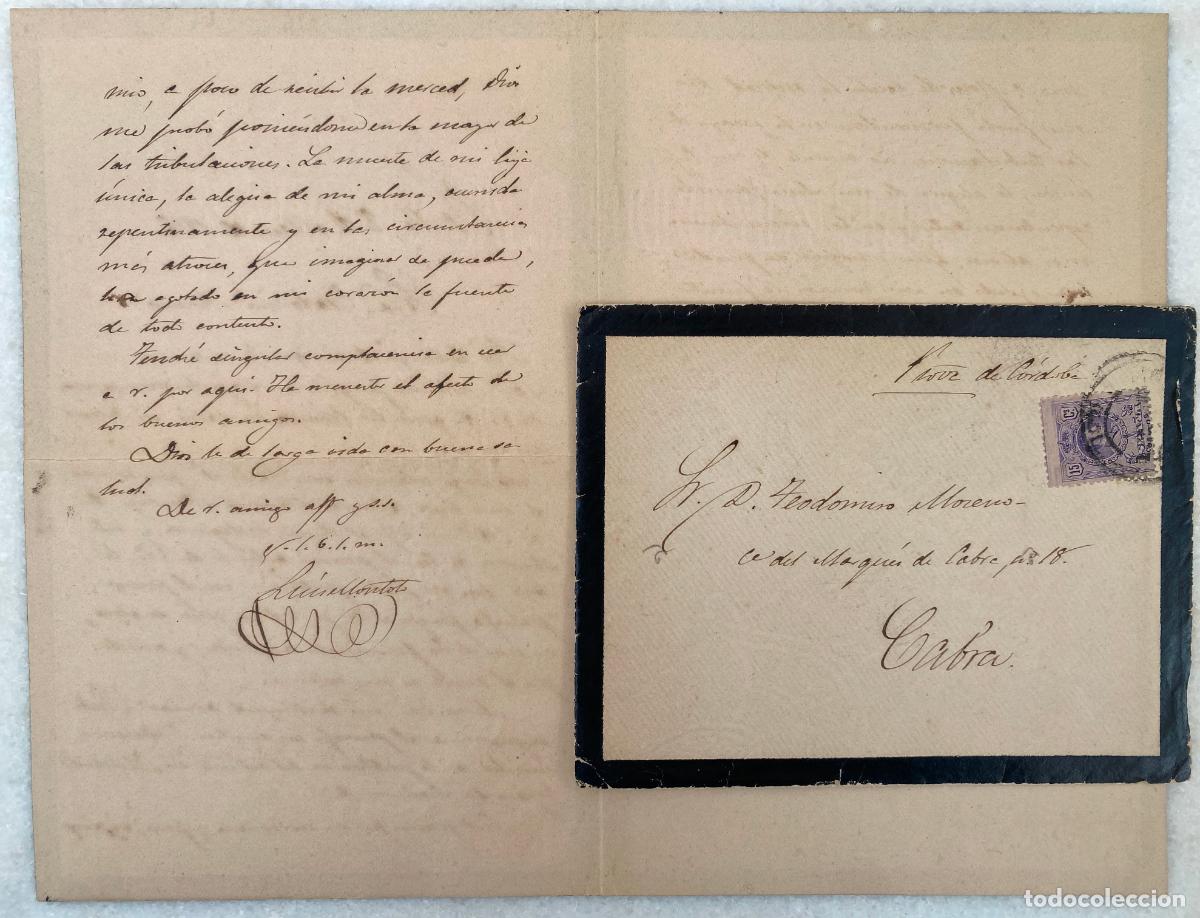 mio, a poco de recibir la merced, Dios
me probó poniéndome en la mayor de
las tribulaciones. La muerte de mi hija
única, la alegria de mi alma, ocurrida
repentinamente y en las circunstancias
más atroces, que imaginar se pueda,
ha agotado en mi corazón la fuente
de todo contento.
Tendré singular complacencia en ver
a V. por aqui. He menester el afecto de
los buenos amigos.
Dios le de larga vida con buena sa
lud.
De V. amigo aff y s.s.
q. l. b. l. m.
Luis Montoto
Prov.ª de Córdoba
15
Sr. D. Teodomiro Moreno
Ce del Marqués de Cabra nº 18.
Cabra.
todocoleccion